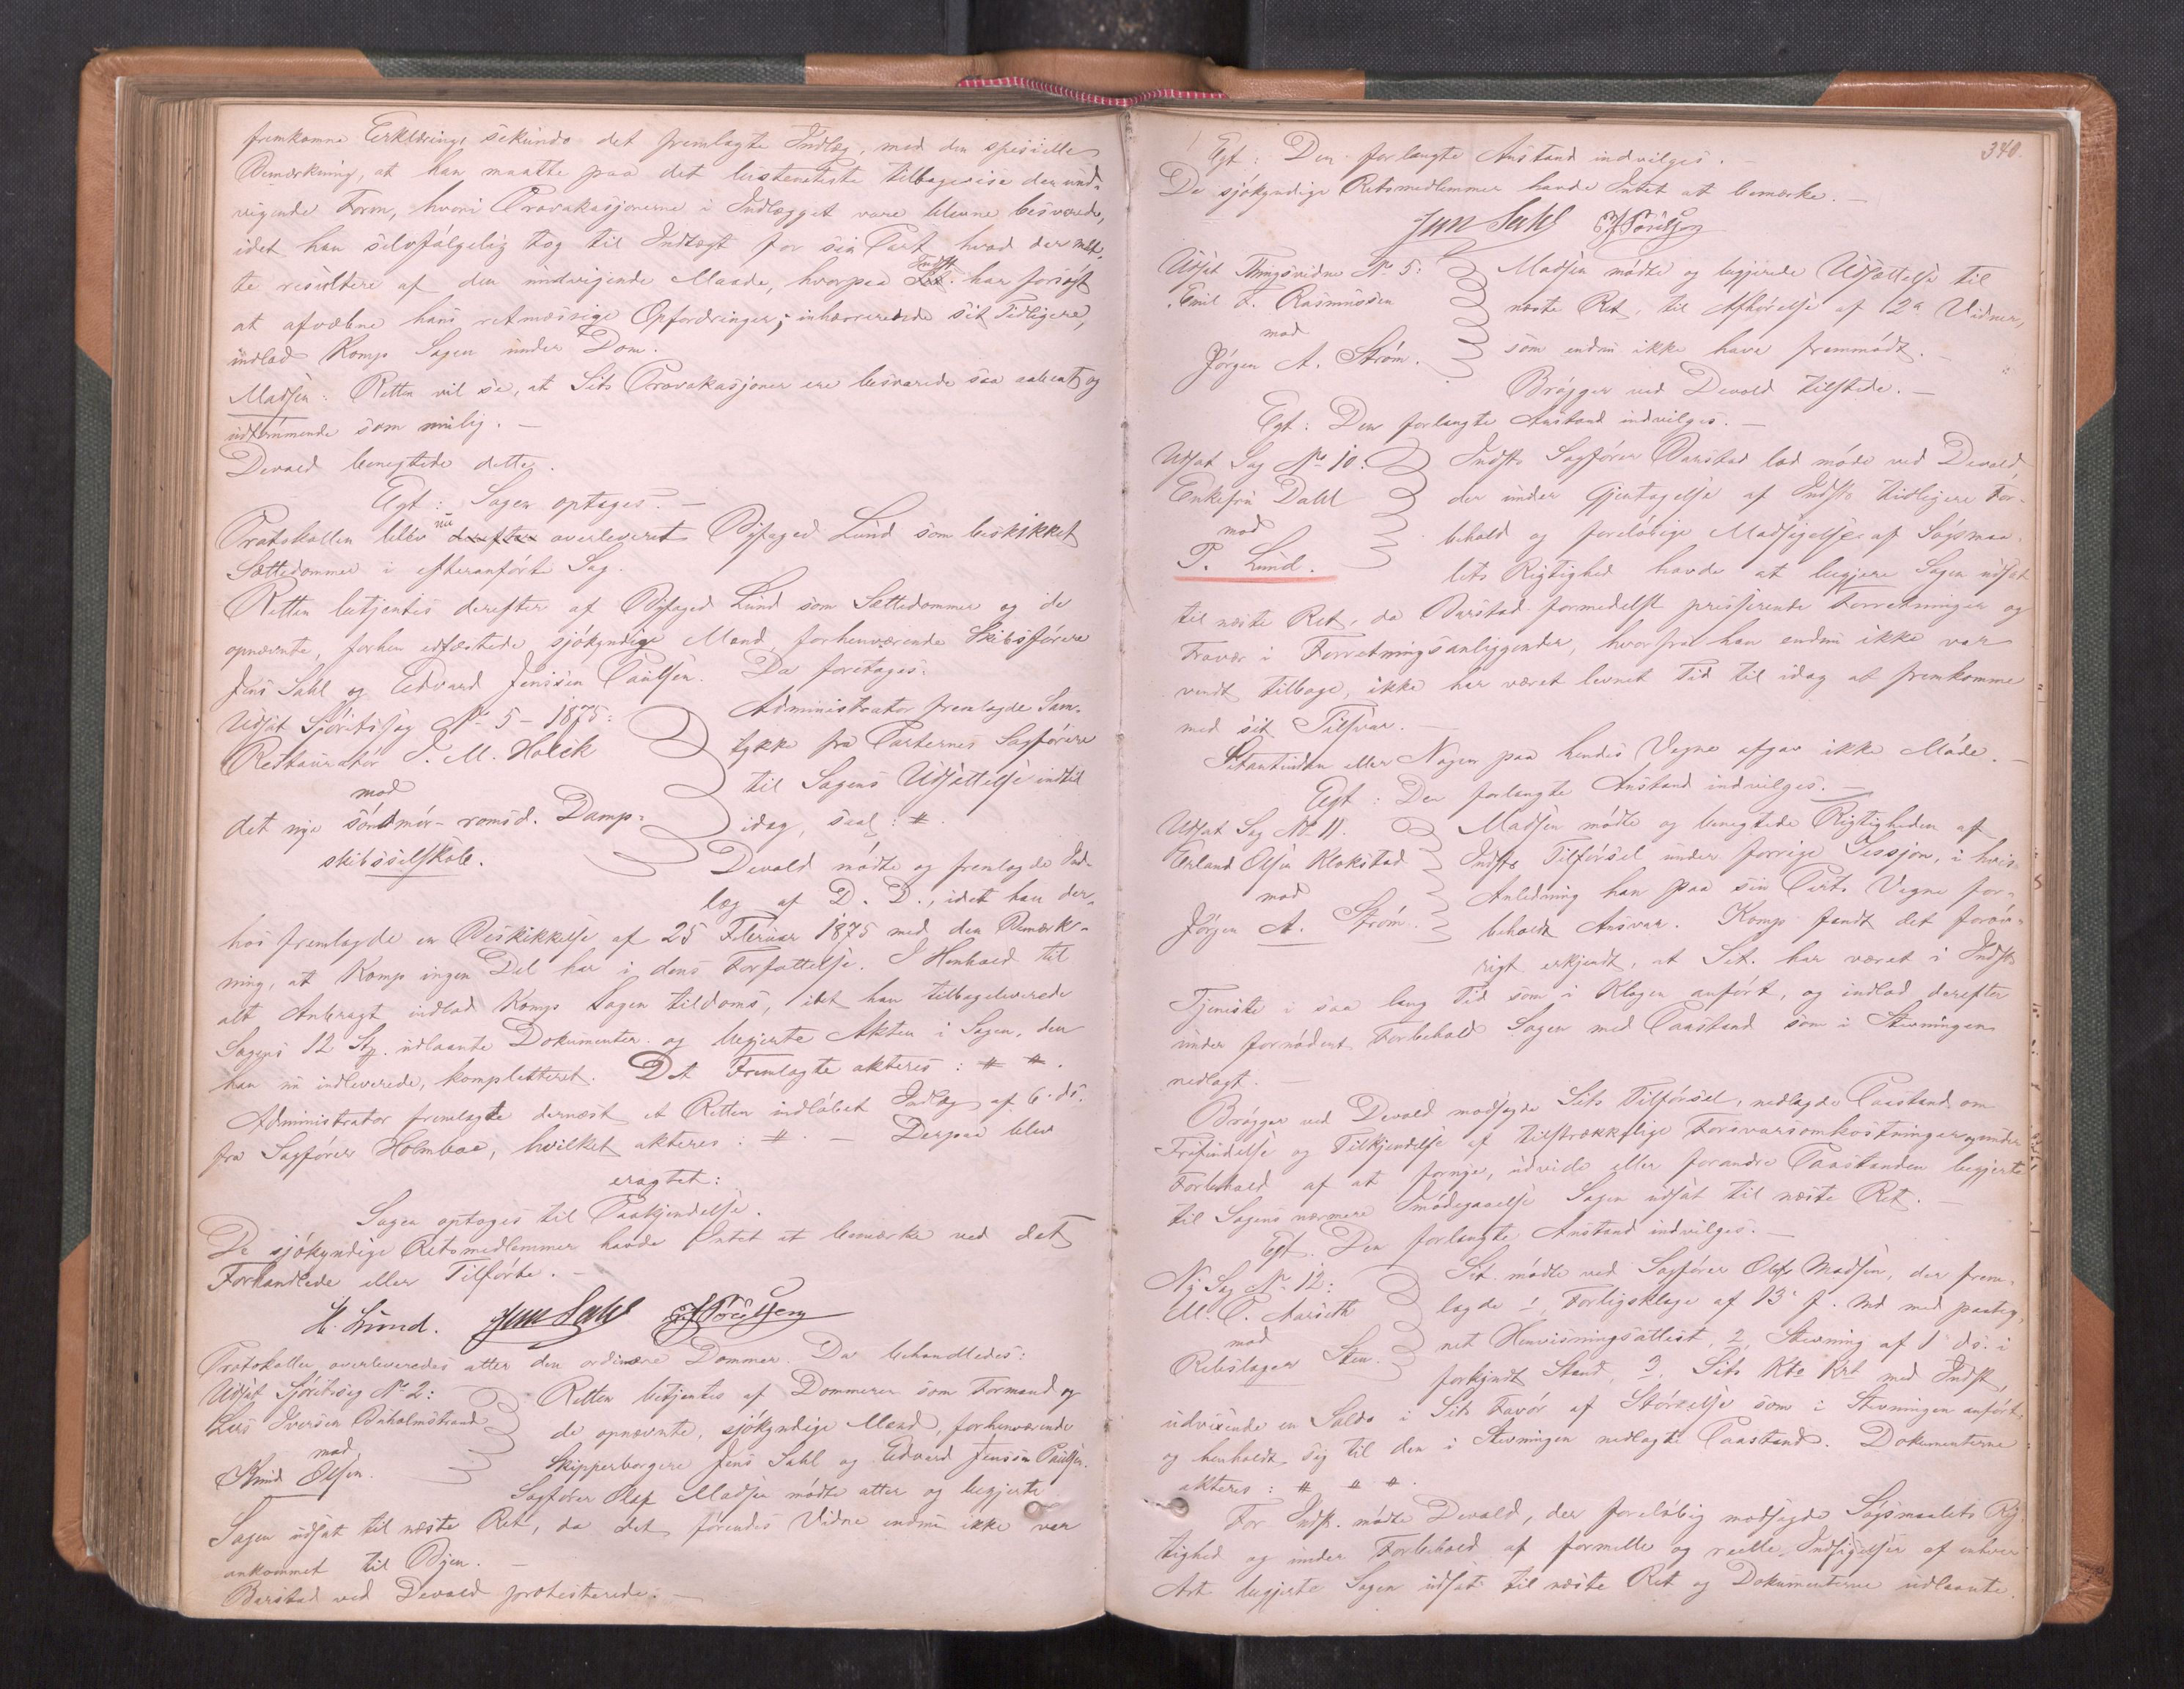 fremkomne Erklæring, sekundo det fremlagte Indlæg, med den specielle
Bemærkning, at han maatte paa det bestemteste tilbagevise den und-
vigende Form, hvori Provokasjonerne i Indlægget vare blevne besvarede,
idet han selvfølgelig tog til Indtægt for sin Part hvad der maat-
te resultere af den undvigende Maade, hvorpaa Indst. har forsøgt
at afvæbne hans retmæssige Opfordringer; inhærerende sit Tidligere,
indlod Komp Sagen under Dom.
Madsen: Retten vil se, at Sits Provokasjoner ere besvarede saa aabent og
udtømmende som mulig. —
Devold benegtede dette.
Egt: Sagen optages. —
Protokollen blev nu derefter overleveret Byfoged Lund som beskikket
Sættedommer i efteranførte Sag.
Retten betjentes derefter af Byfoged Lund som Sættedommer og de
opnævnte, forhen edfæstede sjøkyndige Mænd forhenværende Skibsførere
Jens Sahl og Edvard Jenssen Paulsen. Da foretoges:
Udsat Sjøretssag No 5 - 1875:
Restauratør J. M. Holck
mod
det nye søndmør-romsd. Damp-
skibsselskab.
Administrator fremlagde Sam-
tykke fra Parternes Sagførere
til Sagens Udsættelse indtil
idag, saal: #.
Devold mødte og fremlagde Ind-
læg af D. D., idet han der-
hos fremlagde en Beskikkelse af 25 Februar 1875 med den Bemærk-
ning, at Komp ingen Del har i dens Forfattelse. I Henhold til
alt Anbragt indlod Komp Sagen tildoms, idet han tilbageleverede
Sagens 12 Stp. udlaante Dokumenter og begjerte Akten i Sagen, den
han nu indleverede, kompletteret. Det Fremlagte akteres: # #.
Administrator fremlagte dernæst et Retten indløbet Indlæg af 6. ds.
fra Sagfører Holmboe, hvilket akteres: #. — Derpaa blev
eragtet:
Sagen optages til Paakjendelse.
De sjøkyndige Retsmedlemmer havde Intet at bemærke ved det
Forhandlede eller Tilførte. —
H. Lund. Jens Sahl
Protokollen overleveredes atter den ordinære Dommer. Da behandledes:
Udsat Sjøretssag No 2:
Lars Iversen Buholmstrand
mod
Knud Olsen.
Retten betjentes af Dommeren som Formand og
de opnævnte, sjøkyndige Mænd, forhenværende
Skipperborgere Jens Sahl og Edvard Jenssen Paulsen.
Sagfører Olaf Madsen mødte atter og begjerte
Sagen udsat til næste Ret, da det førendes Vidne endnu ikke var
ankommet til Byen. —
Barstad ved Devold protesterede. —
340.
Egt: Den forlangte Anstand indvilges. —
De sjøkyndige Retsmedlemmer havde Intet at bemærke. —
Jens Sahl
Udsat Thingsvidne No 5:
Emil F. Rasmussen
mod
Jørgen A. Strøm.
Madsen mødte og begjerede Udsættelse til
næste Ret, til Afhørelse af 12a Vidner,
som endnu ikke have fremmødt. —
Brøgger ved Devold tilstede. —
Egt: Den forlangte Anstand indvilges. —
Udsat Sag No 10:
Enkefru Dahl
mod
P. Lund.
Indsts Sagfører Barstad lod møde ved Devold
der under Gjentagelse af Indsts tidligere For-
behold og foreløbige Modsigelse af Søgsmaa-
lets Rigtighed havde at begjere Sagen udsat
til næste Ret, da Barstad formedelst presserende Forretninger og
Fravær i Forretningsanliggender, hvorfra han endnu ikke var
vendt tilbage, ikke har været levnet Tid til idag at fremkomme
med sit Tilsvar. —
Sitantinden eller Nogen paa hendes Vegne afgav ikke Møde. —
Egt: Den forlangte Anstand indvilges. —
Udsat Sag No 11.
Erland Olsen Klokstad
mod
Jørgen A. Strøm.
Madsen mødte og benegtede Rigtigheden af
Indsts Tilførsel under forrige Session, i hvis
Anledning han paa sin Parts Vegne for-
beholdt Ansvar. Komp fandt det forøv-
rigt erkjendt, at Sit. har været i Indsts
Tjeneste i saa lang Tid som i Klagen anført, og indlod derefter
under fornødent Forbehold Sagen med Paastand som i Stevningen
nedlagt. —
Brøgger ved Devold modsagde Sits Tilførsel, nedlagde Paastand om
Frifindelse og Tilkjendelse af tilstrækkelige Forsvarsomkostninger og under
Forbehold af at fornye, udvide eller forandre Paastanden begjerte
til Sagens nærmere Imødegaaelse Sagen udsat til næste Ret. —
Egt. Den forlangte Anstand indvilges. —
Ny Sag No 12:
M. C. Aarseth
mod
Rebslager Sten.
Sit. mødte ved Sagfører Olaf Madsen, der frem-
lagde 1, Forligsklage af 13 f. Md med paateg-
net Henvisningsattest, 2, Stevning af 1 ds. i
forkyndt Stand, 3, Sits Kto Krt med Indst,
udvisende en Saldo i Sits Favør af Størrelse som i Stevningen anført,
og henholdt sig til den i Stevningen nedlagte Paastand. Dokumenterne
akteres: # # #.
For Indst. mødte Devold, der foreløbig modsagde Søgsmaalets Rig-
tighed og under Forbehold af formelle og reelle Indsigelser af enhver
Art begjerte Sagen udsat til næste Ret og Dokumenterne udlaante.